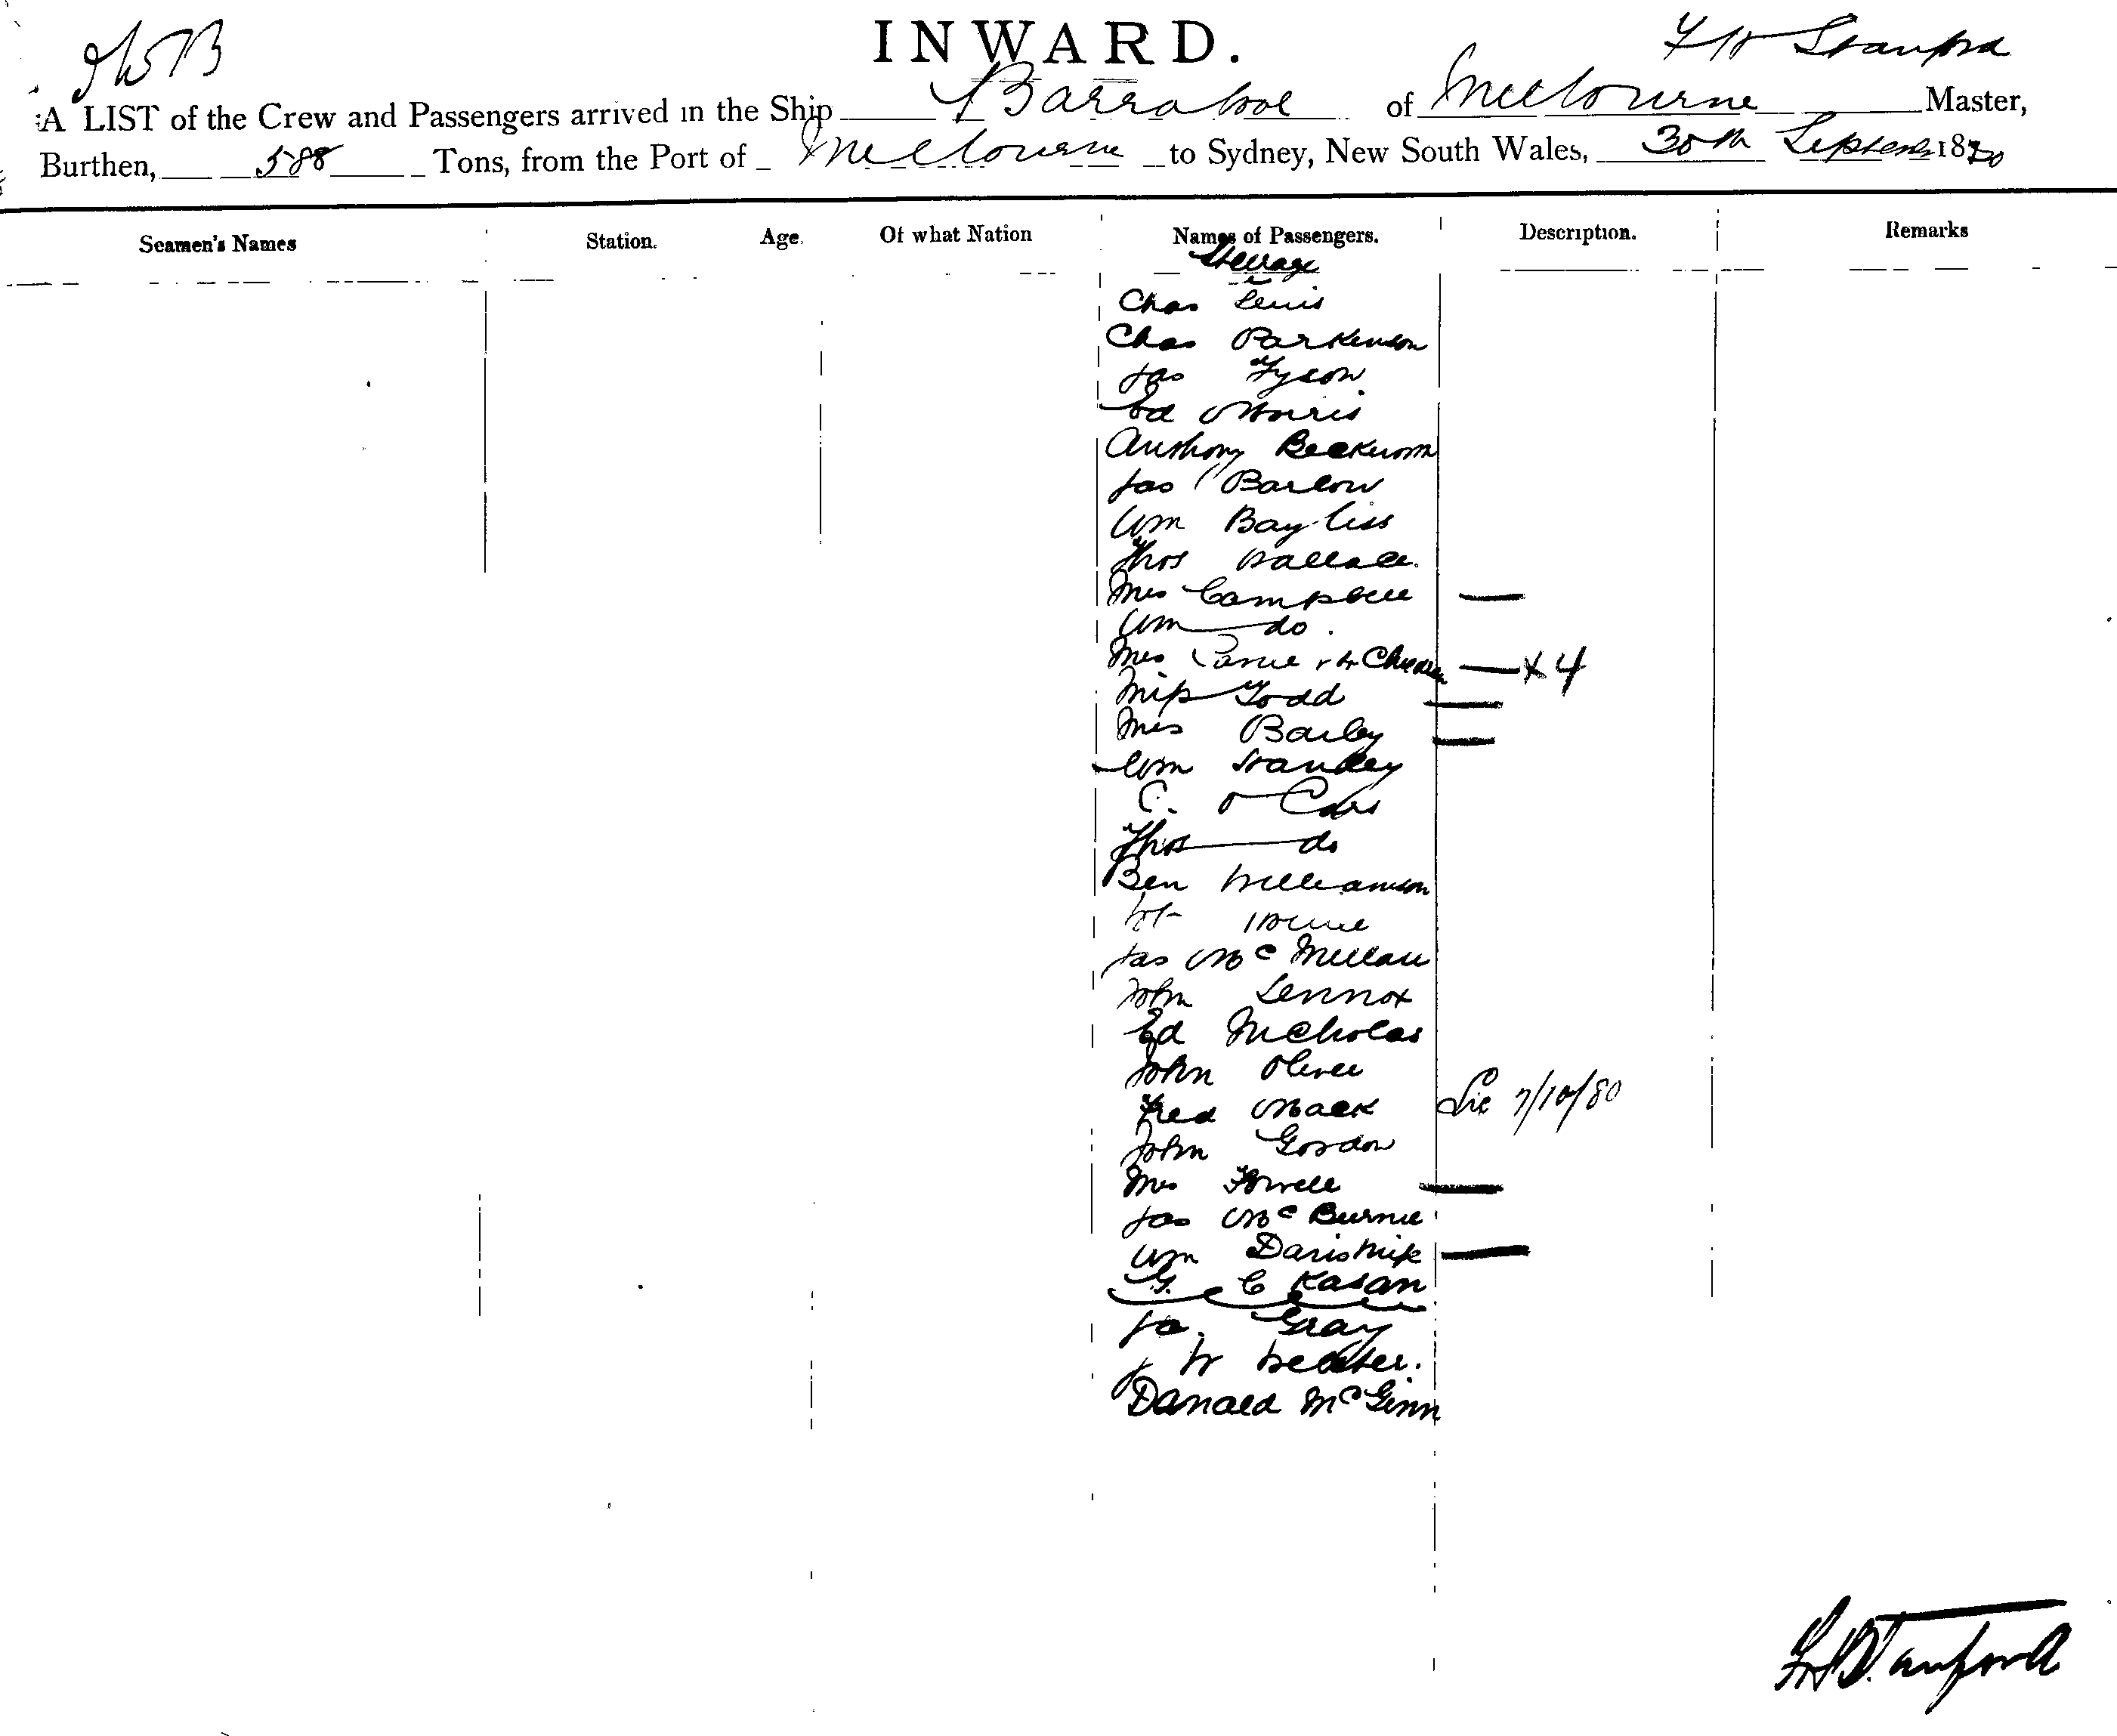 INWARD.
F W Stanford
A LIST of the Crew and Passengers arrived in the Ship Barrabool of Melbourne Master,
Burthen, 588 Tons, from the Port of Melbourne to Sydney, New South Wales, 30th September 1880
Seamen's Names Station. Age. Of what Nation Names of Passengers. Description. Remarks
Steerage
Chas Lewis
Chas Parkinson
Jas Tyson
Ed Morris
Anthony
Jas Barlow
Wm Bayliss
Thos Wallace.
Mrs Campbell —
Wm — do.
Mrs Children — x 4
Miss Todd —
Mrs Bailey —
Wm
C.
Thos — do
Ben Williamson
Jas McMillan
John Lennox
Ed Nicholas
John Oliver
Fred Mack Sic 7/10/80
John Gordon
Mrs —
Jas McBurnie
Wm —
G. C Kasan
Jas. Gray
J W Webster.
Donald McGinn
F W Stanford